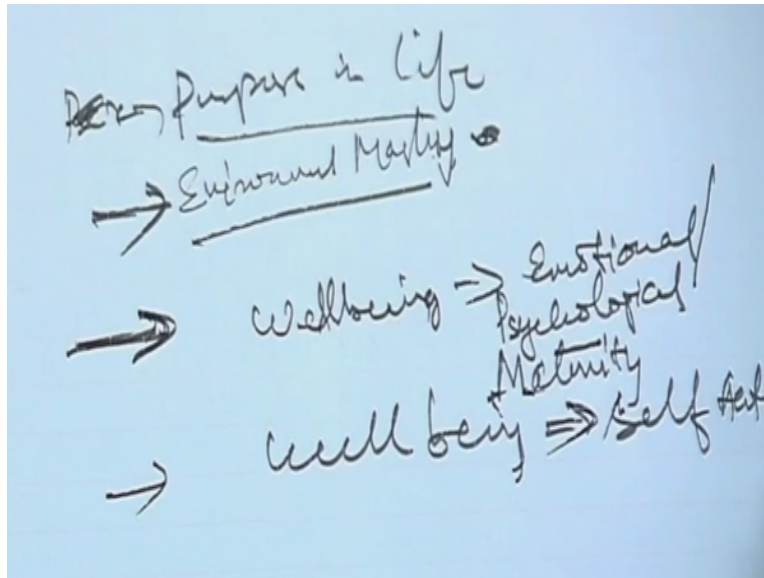 Purpose in life
→ Enviornmnt Mastry
→ Wellbeing → Emotional/
Psychological
Maturity
→ Well being ⇒ Self